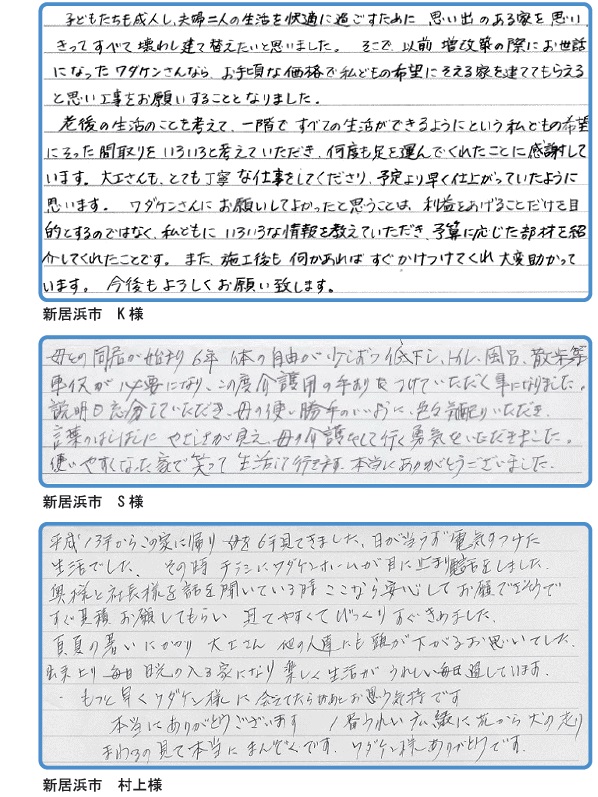 子どもたちも成人し、夫婦二人の生活を快適に過ごすために 思い出のある家を思い
きってすべて壊わし建て替えたいと思いました。そこで、以前増改築の際にお世話
になったワダケンさんなら、お手頃な価格で私どもの希望にそえる家を建ててもらえる
と思い工事をお願いすることとなりました。
老後の生活のことを考えて、一階ですべての生活ができるようにという私どもの希望
にそった間取りをいろいろと考えていただき、何度も足を運んでくれたことに感謝して
います。大工さんも、とても丁寧な仕事をしてくださり、予定より早く仕上がっていたように
思います。 ワダケンさんにお願いしてよかったと思うことは、利益をあげることだけを目
的とするのではなく、私どもにいろいろな情報を教えていただき、予算に応じた部材を紹
介してくれたことです。また、施工後も何かあればすぐかけつけてくれ大変助かって
います。今後もよろしくお願い致します。
新居浜市 K様
母との同居が始まり6年 体の自由が少しずつ低下し、トイレ、風呂、散歩等
車仅が必要になり、この度介護用の手すりをつけていただく事になりました。
説明も充分していただき、母の使い勝手のいいように、色々気配りいただき、
言葉のはしばしに やさしさが見え、母の介護をして行く勇気をいただきました。
使いやすくなった家で笑って生活して行きます。本当にありがとうございました。
新居浜市 S様
平成13年からこの家に帰り 母を6年見てきました、日が当らず電気をつけた
生活でした、その時 チラシにワダケンホームが目に止まり電話をしました。
奥様と社長様を話を聞いている時 ここなら安心してお願いできそうで
すぐ見積お願いしてもらい 見てやすくてびっくりすぐきめました。
真夏の暑いにかかり 大工さん 他の人達にも頭が下がるお思いでした。
出来上り 毎日 日光の入る家になり 楽しく生活が うれしい毎日過しています。
もっと早くワダケン様に 会えてたら お思う気持です
本当にありがとうございます 1番うれしい広縁に花から犬の走り
まわるの見て本当にまんぞくです。ワダケン様ありがとうです。
新居浜市 村上様